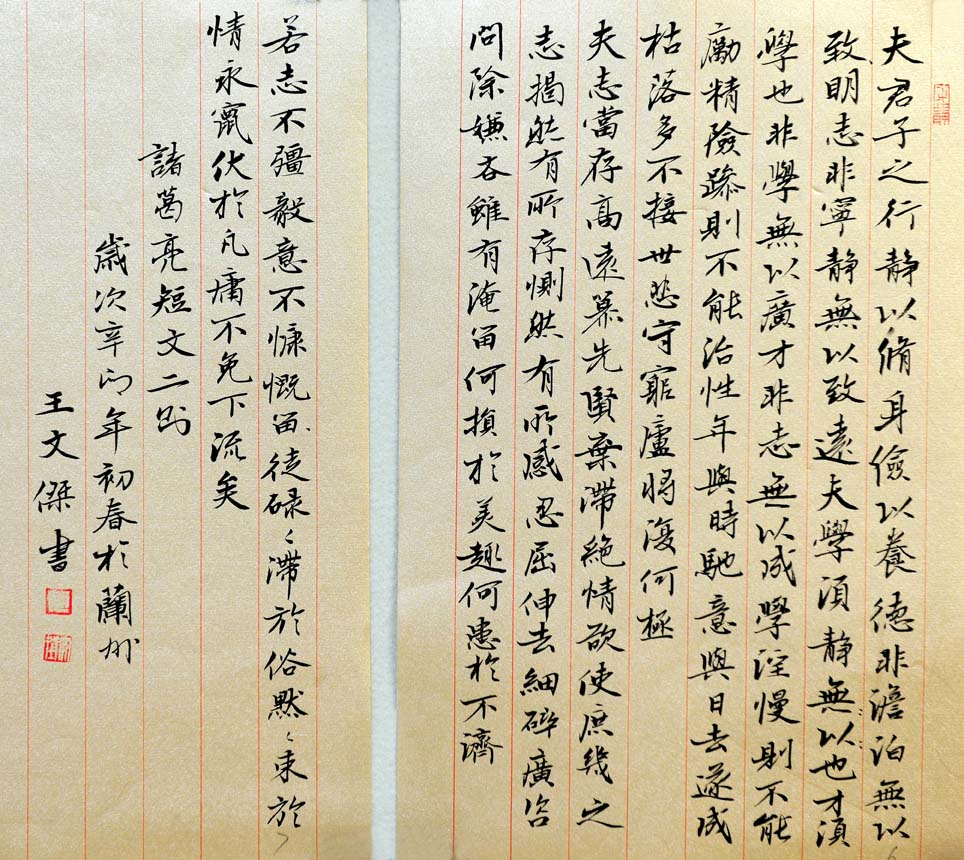 夫君子之行靜以脩身儉以養德非澹泊無以
致明志非寧靜無以致遠夫學須靜無以也才須
學也非學無以廣才非志無以成學淫慢則不能
勵精險躁則不能治性年與時馳意與日去遂成
枯落多不接世悲守窮廬將復何極
夫志當存高遠慕先賢棄滯絕情欲使庶幾之
志揭然有所存惻然有所感忍屈伸去細碎廣咨
問除嫌吝雖有淹留何損於美趣何患於不濟
若志不彊毅意不慷慨留徒碌〻滯於俗默〻束於
情永竄伏於凡庸不免下流矣
諸葛亮短文二則
歲次辛卯年初春於蘭州
王文傑書